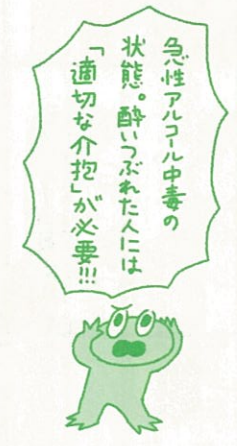 急性アルコール中毒の
状態。酔いつぶれた人には
「適切な介抱」が必要!!!